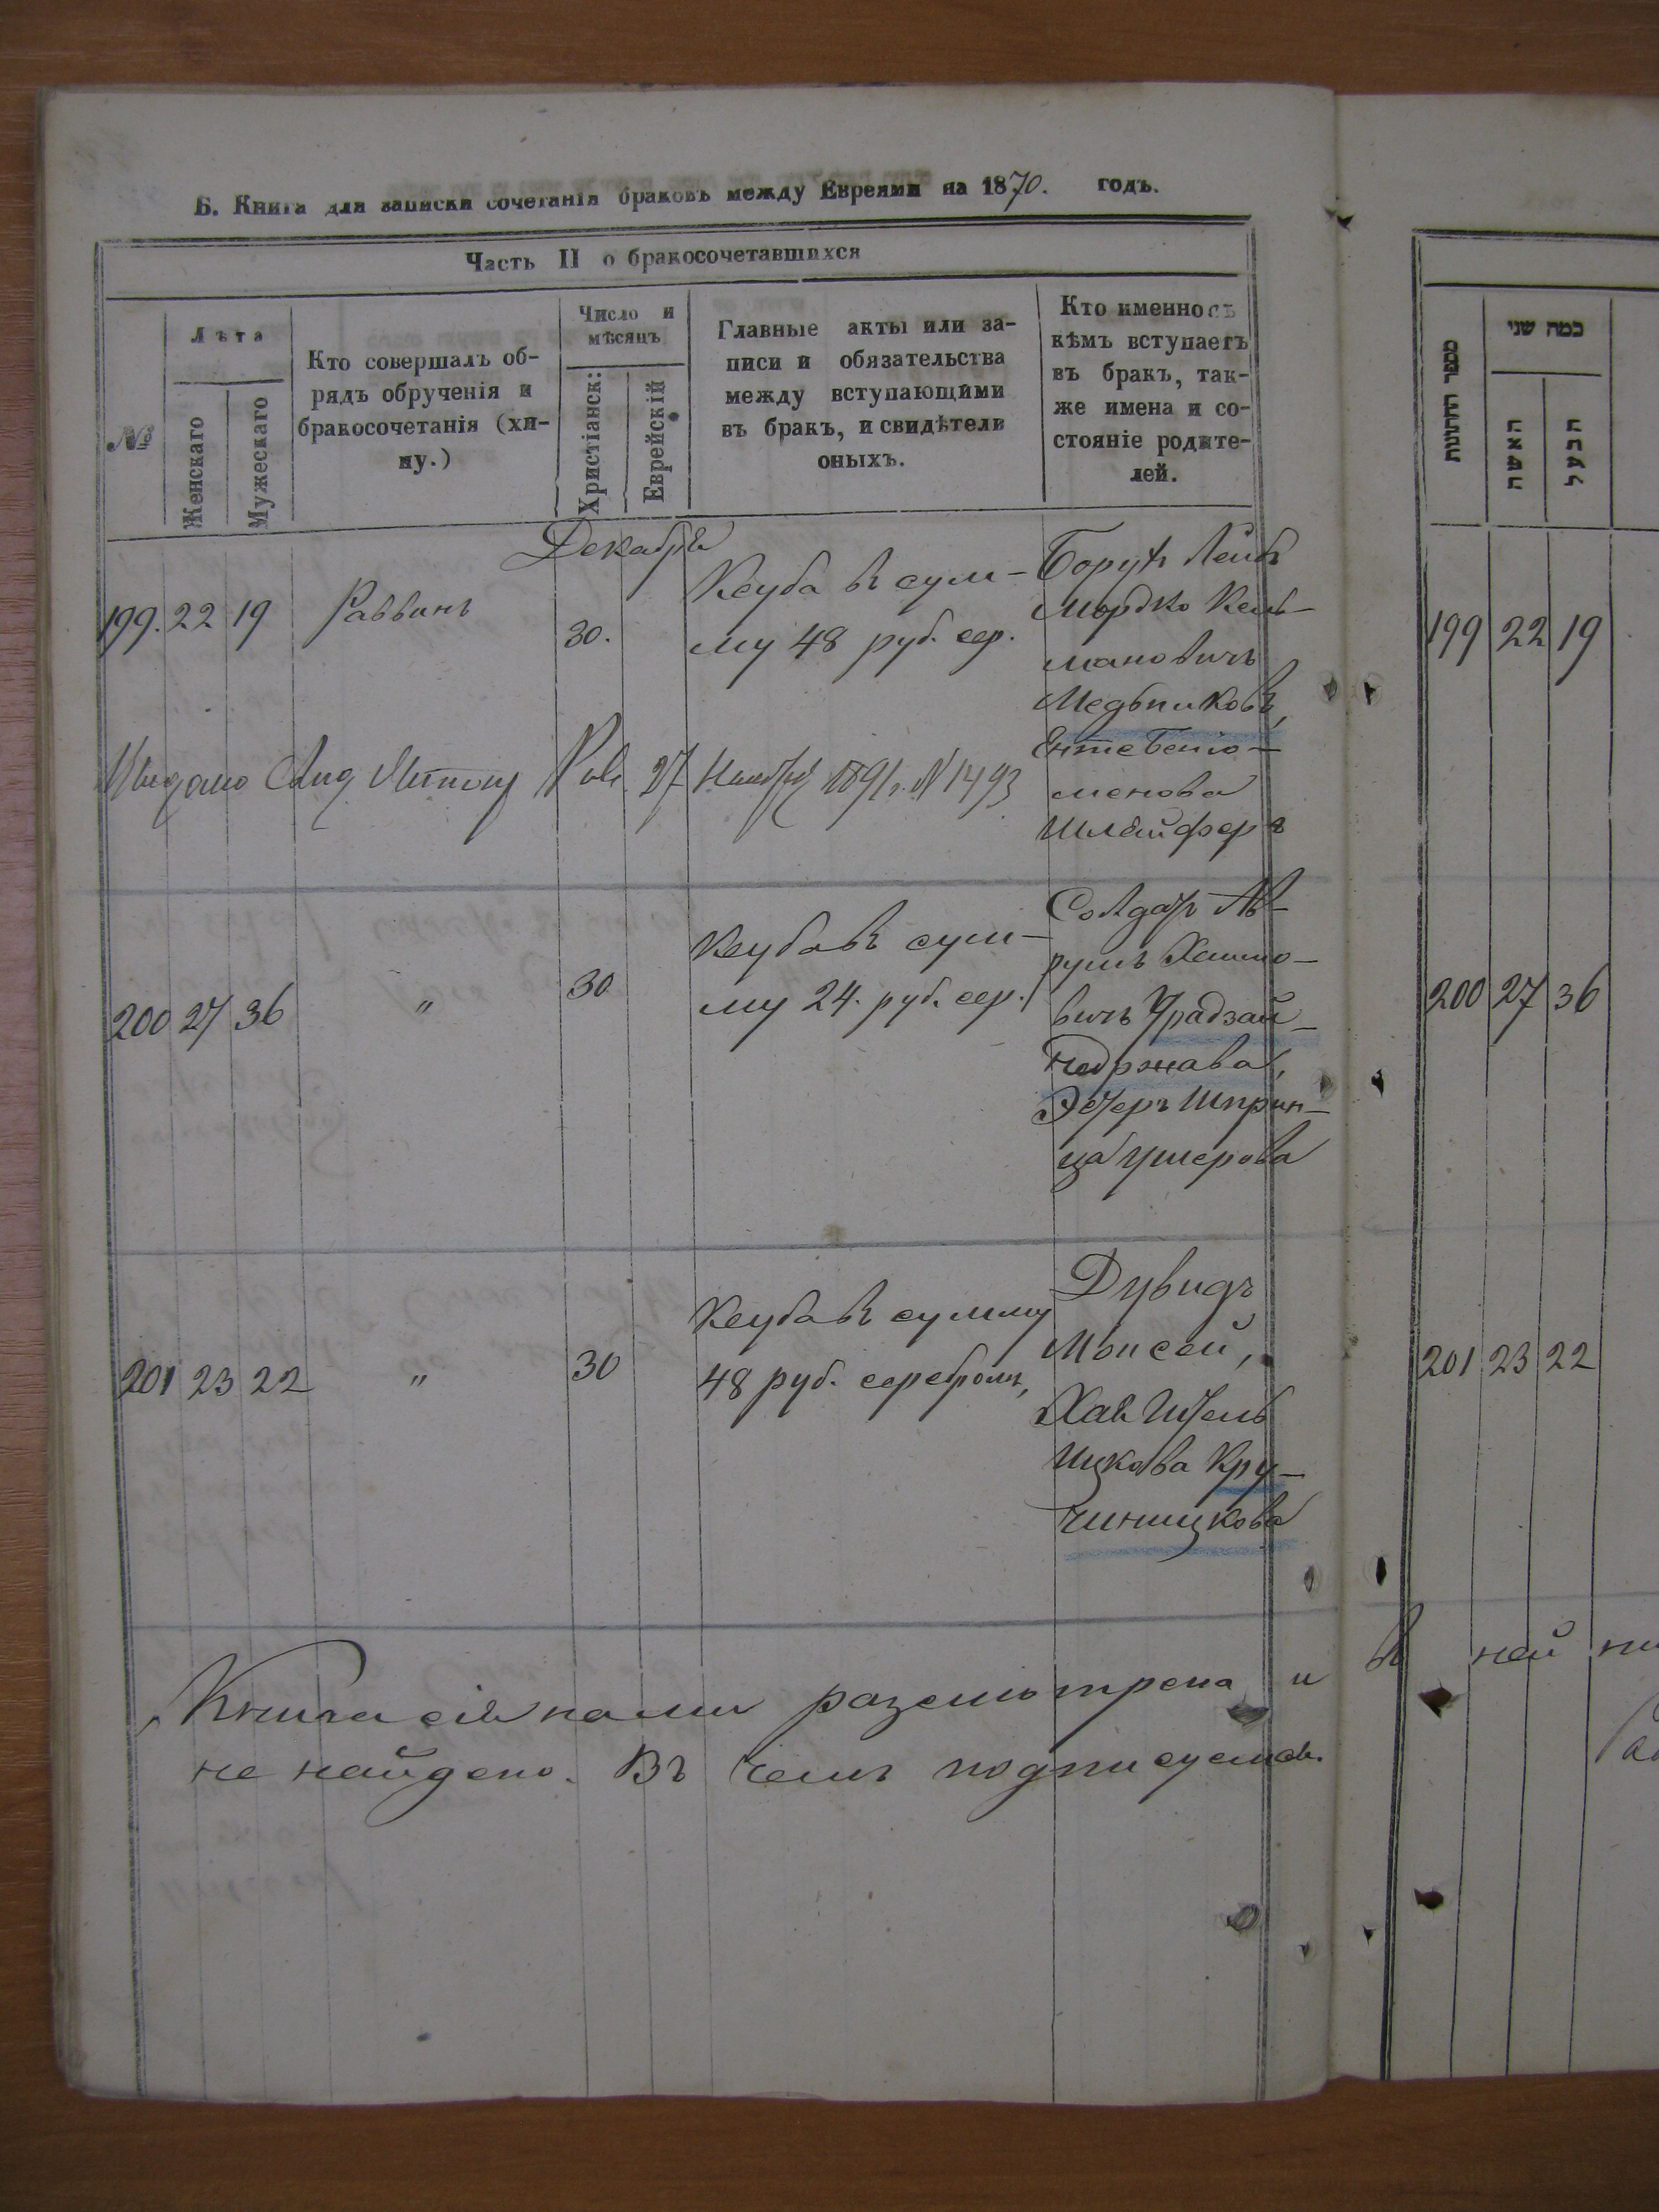 Б. Книга для записки сочетанія браковъ между Евреями на 1870. годъ.
Часть II о бракосочетавшихся
№
Лѣта
Женскаго
Мужескаго
Кто совершалъ об-
рядъ обрученія и
бракосочетанія (хи-
пу.)
Число и
мѣсяцъ
Христіанск:
Еврейскій
Главные акты или за-
писи и обязательства
между вступающими
въ бракъ, и свидѣтели
оныхъ.
Кто именно съ
кѣмъ вступаетъ
въ бракъ, так-
же имена и со-
стояніе родите-
лей.
Декабря
199. 22 19 Раввинъ 30.
Кеуба въ сум-
му 48 руб. сер.
Борухъ Лейбъ
Мордко Кель-
мановичъ
Медьниковъ,
Енте Беніо-
менова
Шлейферъ
Выдано 27 Ноября 1891 г. № 1493
200 27 36 " 30
Кеуба въ сум-
му 24. руб. сер.
Солдатъ Ав-
румъ Хаимо-
вичъ
Эстеръ Шприн-
ца Ушерова
201 23 22 " 30
Кеуба въ сумму
48 руб. серебромъ,
Дувидъ
Моисей,
Ицкова Кру-
чиницкова
Книга сія нами разсмотрена и
не найдено. Въ чемъ подписуемся.
מספר החתונות
כמה שני
האשה
הבעל
199 22 19
200 27 36
201 23 22
въ ней